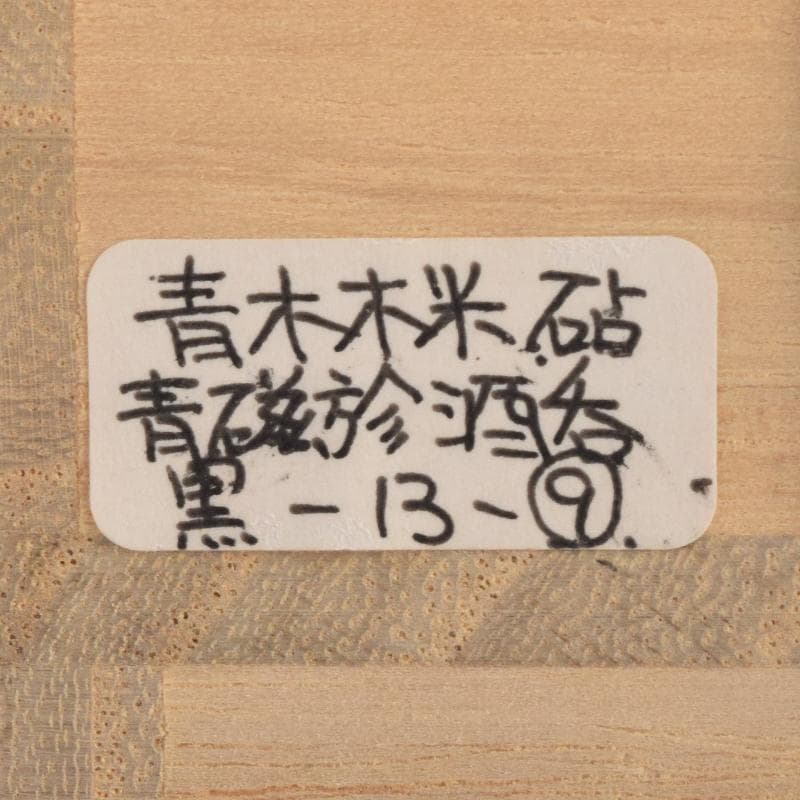 青木木米 砧
青磁 酒呑
黒-13-⑨